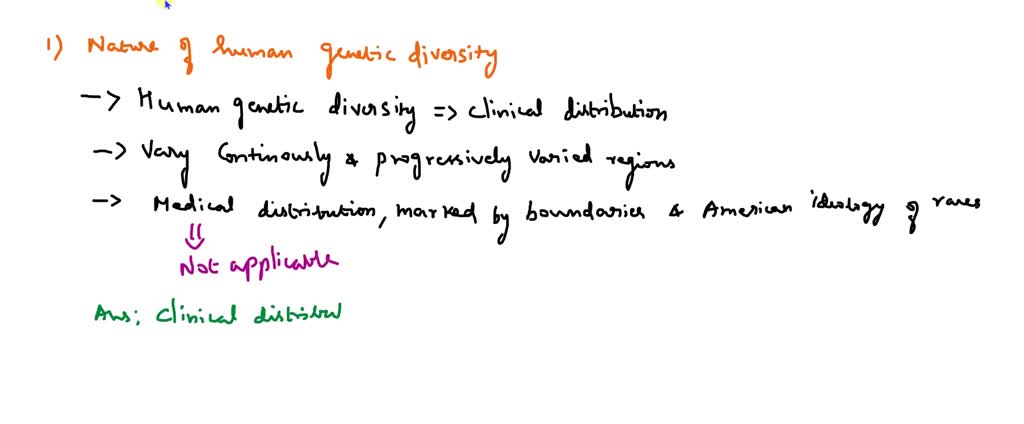 1) Nature of human genetic diversity
-> Human genetic diversity => Clinical distribution
-> Vary Continously & progressively varied regions
-> Medical distribution, marked by boundaries & American ideology of races
Not applicable
Ans; Clinical distribu